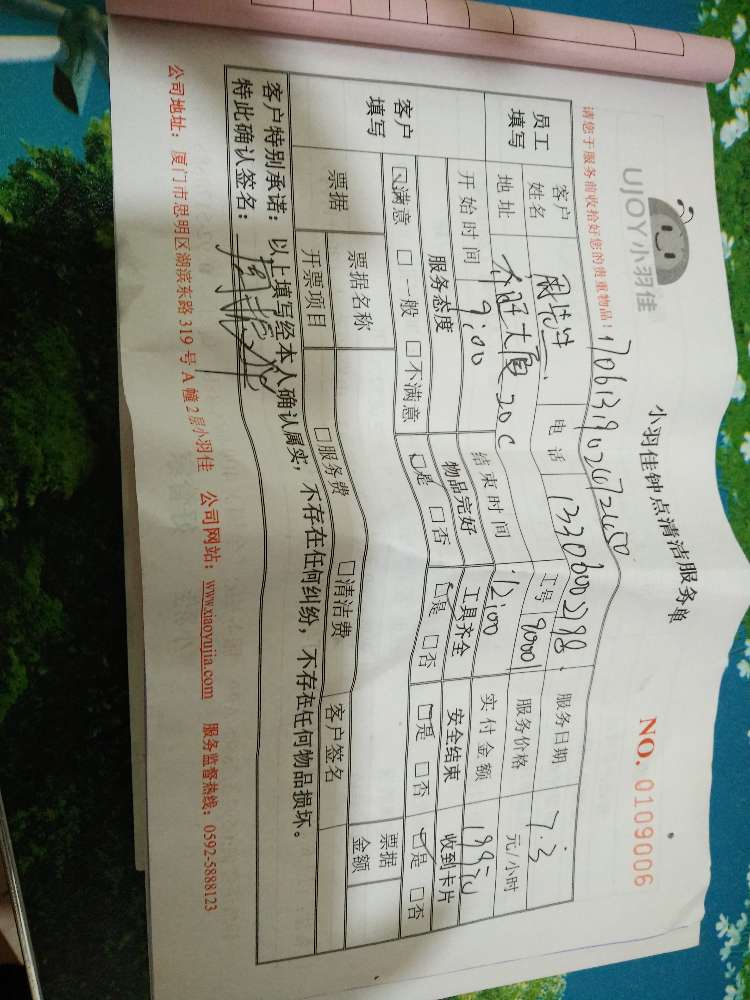 UJOY小羽佳
小羽佳钟点清洁服务单
NO. 0109006
请您于服务前收拾好您的贵重物品!
员工填写 客户姓名 周先生 电话 13306002188 服务日期 7.3
地址 大厦20C 工号 9001 服务价格 元/小时
开始时间 9:00 结束时间 12:00 实付金额 199元
客户填写 服务态度 物品完好 工具齐全 安全结束 收到卡片
☑满意 □一般 □不满意 ☑是 □否 ☑是 □否 ☑是 □否 ☑是 □否
票据 票据名称 客户签名 票据金额
开票项目 □服务费 □清洁费
客户特别承诺:以上填写经本人确认属实,不存在任何纠纷,不存在任何物品损坏。
特此确认签名:
公司地址:厦门市思明区湖滨东路 319 号 A 幢 2 层小羽佳 公司网站:www.xiaoyujia.com 服务监督热线:0592-5888123